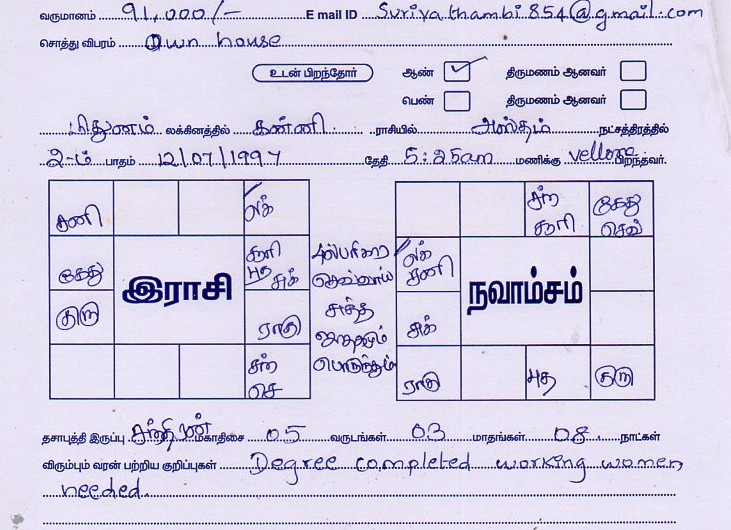 வருமானம் 91,000/- E mail ID Suriyathambi854@gmail.com
சொத்து விபரம் Own house
உடன் பிறந்தோர் ஆண் ✓ திருமணம் ஆனவர்
பெண் திருமணம் ஆனவர்
மிதுனம் லக்கினத்தில் கன்னி ராசியில் அஸ்தம் நட்சத்திரத்தில்
2-ம் பாதம் 12/07/1997 தேதி 5:25am மணிக்கு vellore பிறந்தவர்.
சனி லக்
கேது சூரி புத சுக்
குரு ராகு
சந் செ
இராசி
பரிகார
செவ்வாய்
சுத்த
ஜாதகமும்
பொருந்தும்
சந் சூரி கேது செவ்
லக் சனி
சுக்
ராகு புத குரு
நவாம்சம்
தசாபுத்தி இருப்பு சந்திரன் மகாதிசை 05 வருடங்கள் 03 மாதங்கள் 08 நாட்கள்
விரும்பும் வரன் பற்றிய குறிப்புகள் Degree completed working women
needed.